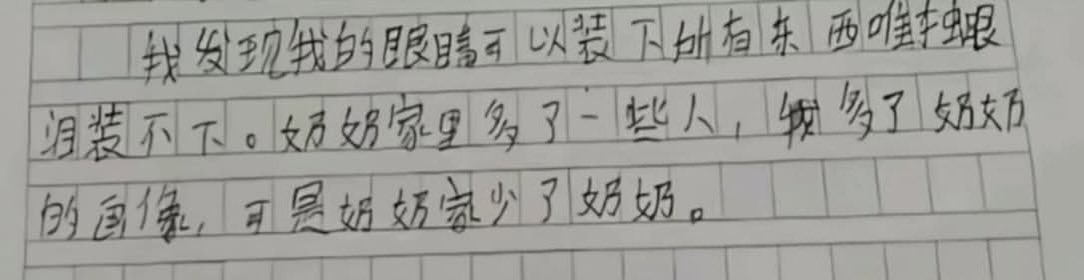 我发现我的眼睛可以装下所有东西唯独眼
泪装不下。奶奶家里多了一些人，多了奶奶
的画像，可是奶奶家少了奶奶。